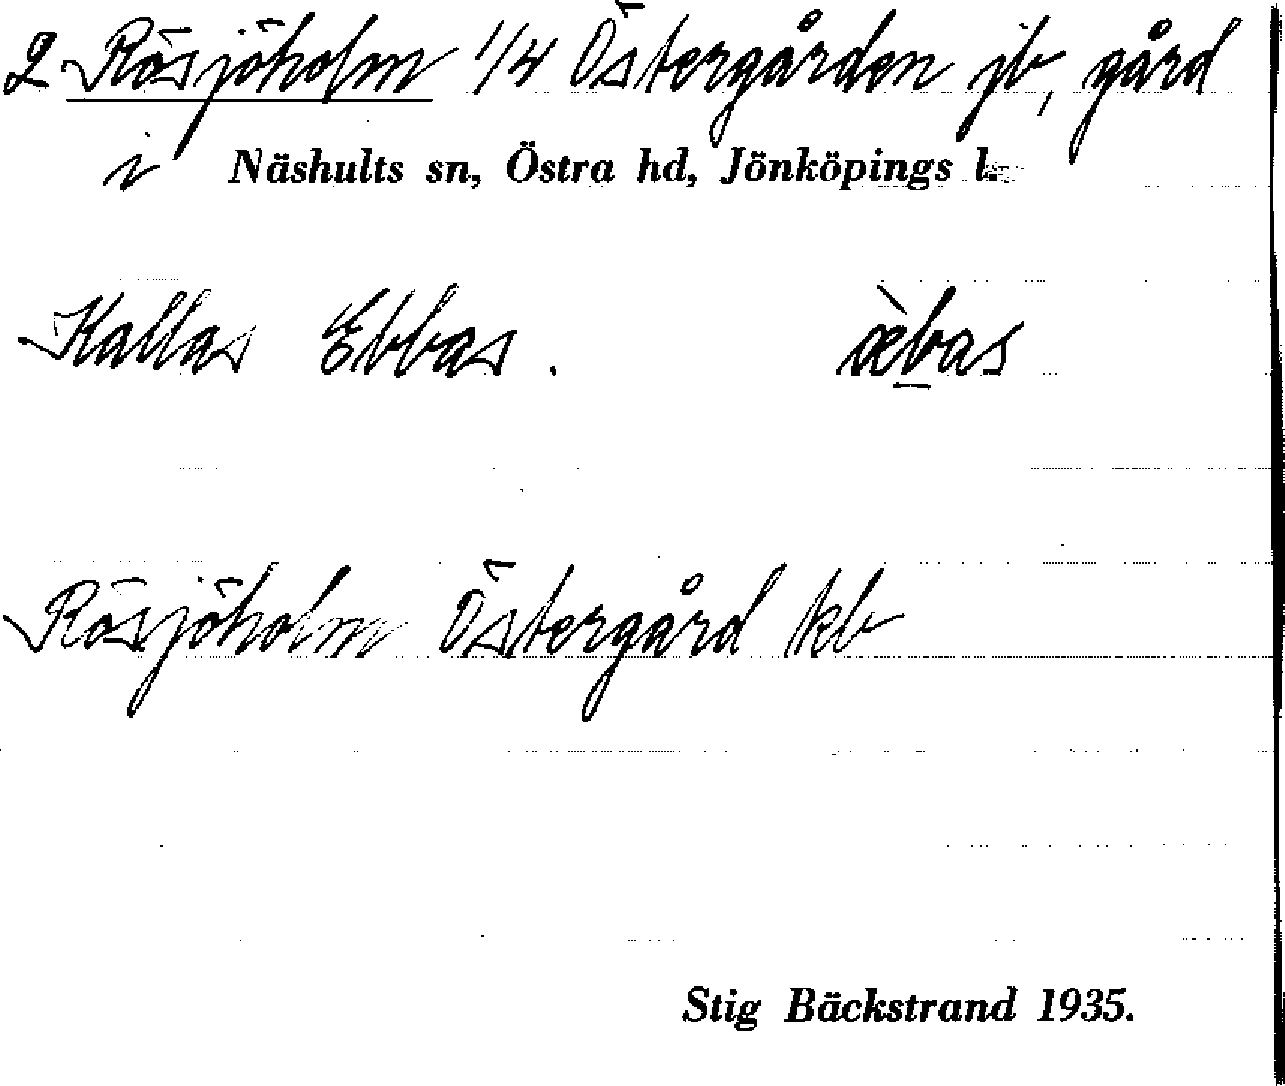 2 Rösjöholm 1/4 Östergården jb, gård
i Näshults sn, Östra hd, Jönköpings l.
Kallas Ebbas. æ̀bas
Rösjöholm Östergård kb
Stig Bäckstrand 1935.